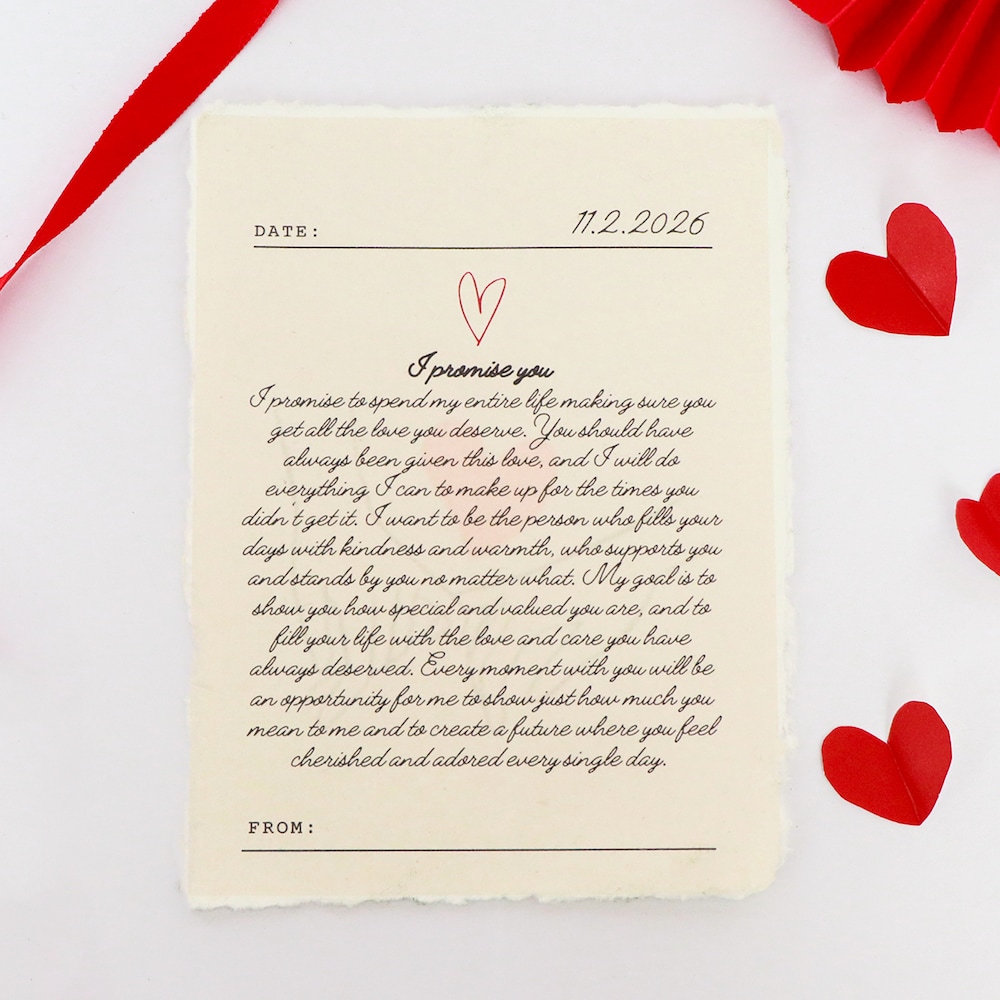 DATE: 11.2.2026
I promise you
I promise to spend my entire life making sure you
get all the love you deserve. You should have
always been given this love, and I will do
everything I can to make up for the times you
didn't get it. I want to be the person who fills your
days with kindness and warmth, who supports you
and stands by you no matter what. My goal is to
show you how special and valued you are, and to
fill your life with the love and care you have
always deserved. Every moment with you will be
an opportunity for me to show just how much you
mean to me and to create a future where you feel
cherished and adored every single day.
FROM: